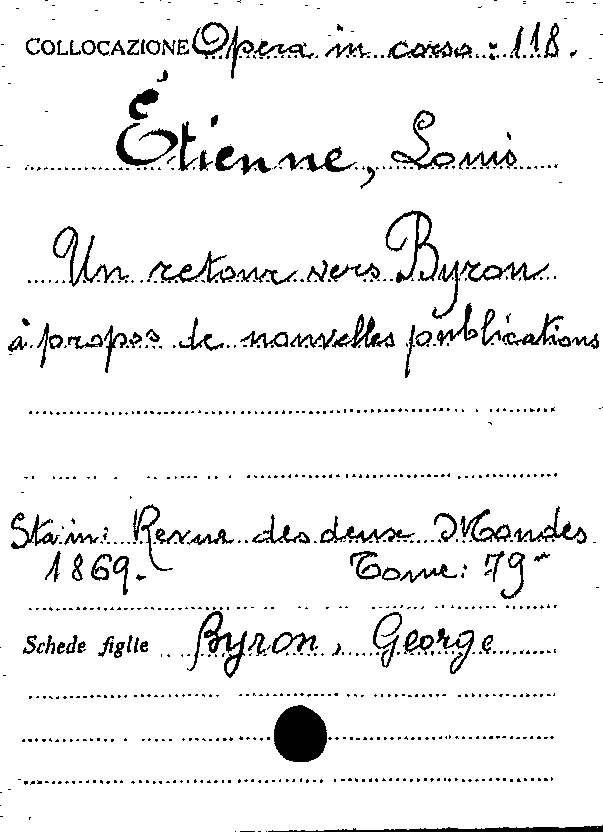 COLLOCAZIONE Opera in corso : 118.
Étienne, Louis
Un retour vers Byron
à propos de nouvelles publications
Sta in: Revue des deux Mondes
1869.- Tome: 79-
Schede figlie Byron, George